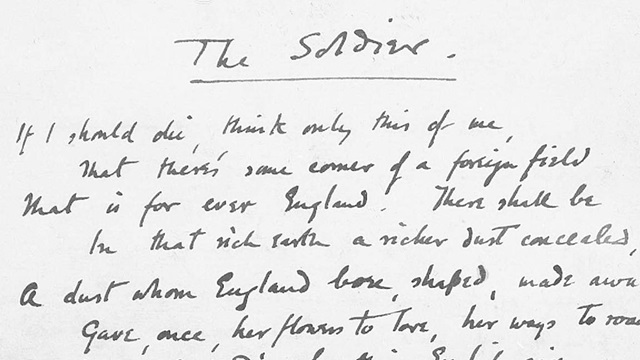 The Soldier.
If I should die, think only this of me,
That there's some corner of a foreign field
That is for ever England. There shall be
In that rich earth a richer dust concealed,
A dust whom England bore, shaped, made awa
Gave, once, her flowers to love, her ways to roa